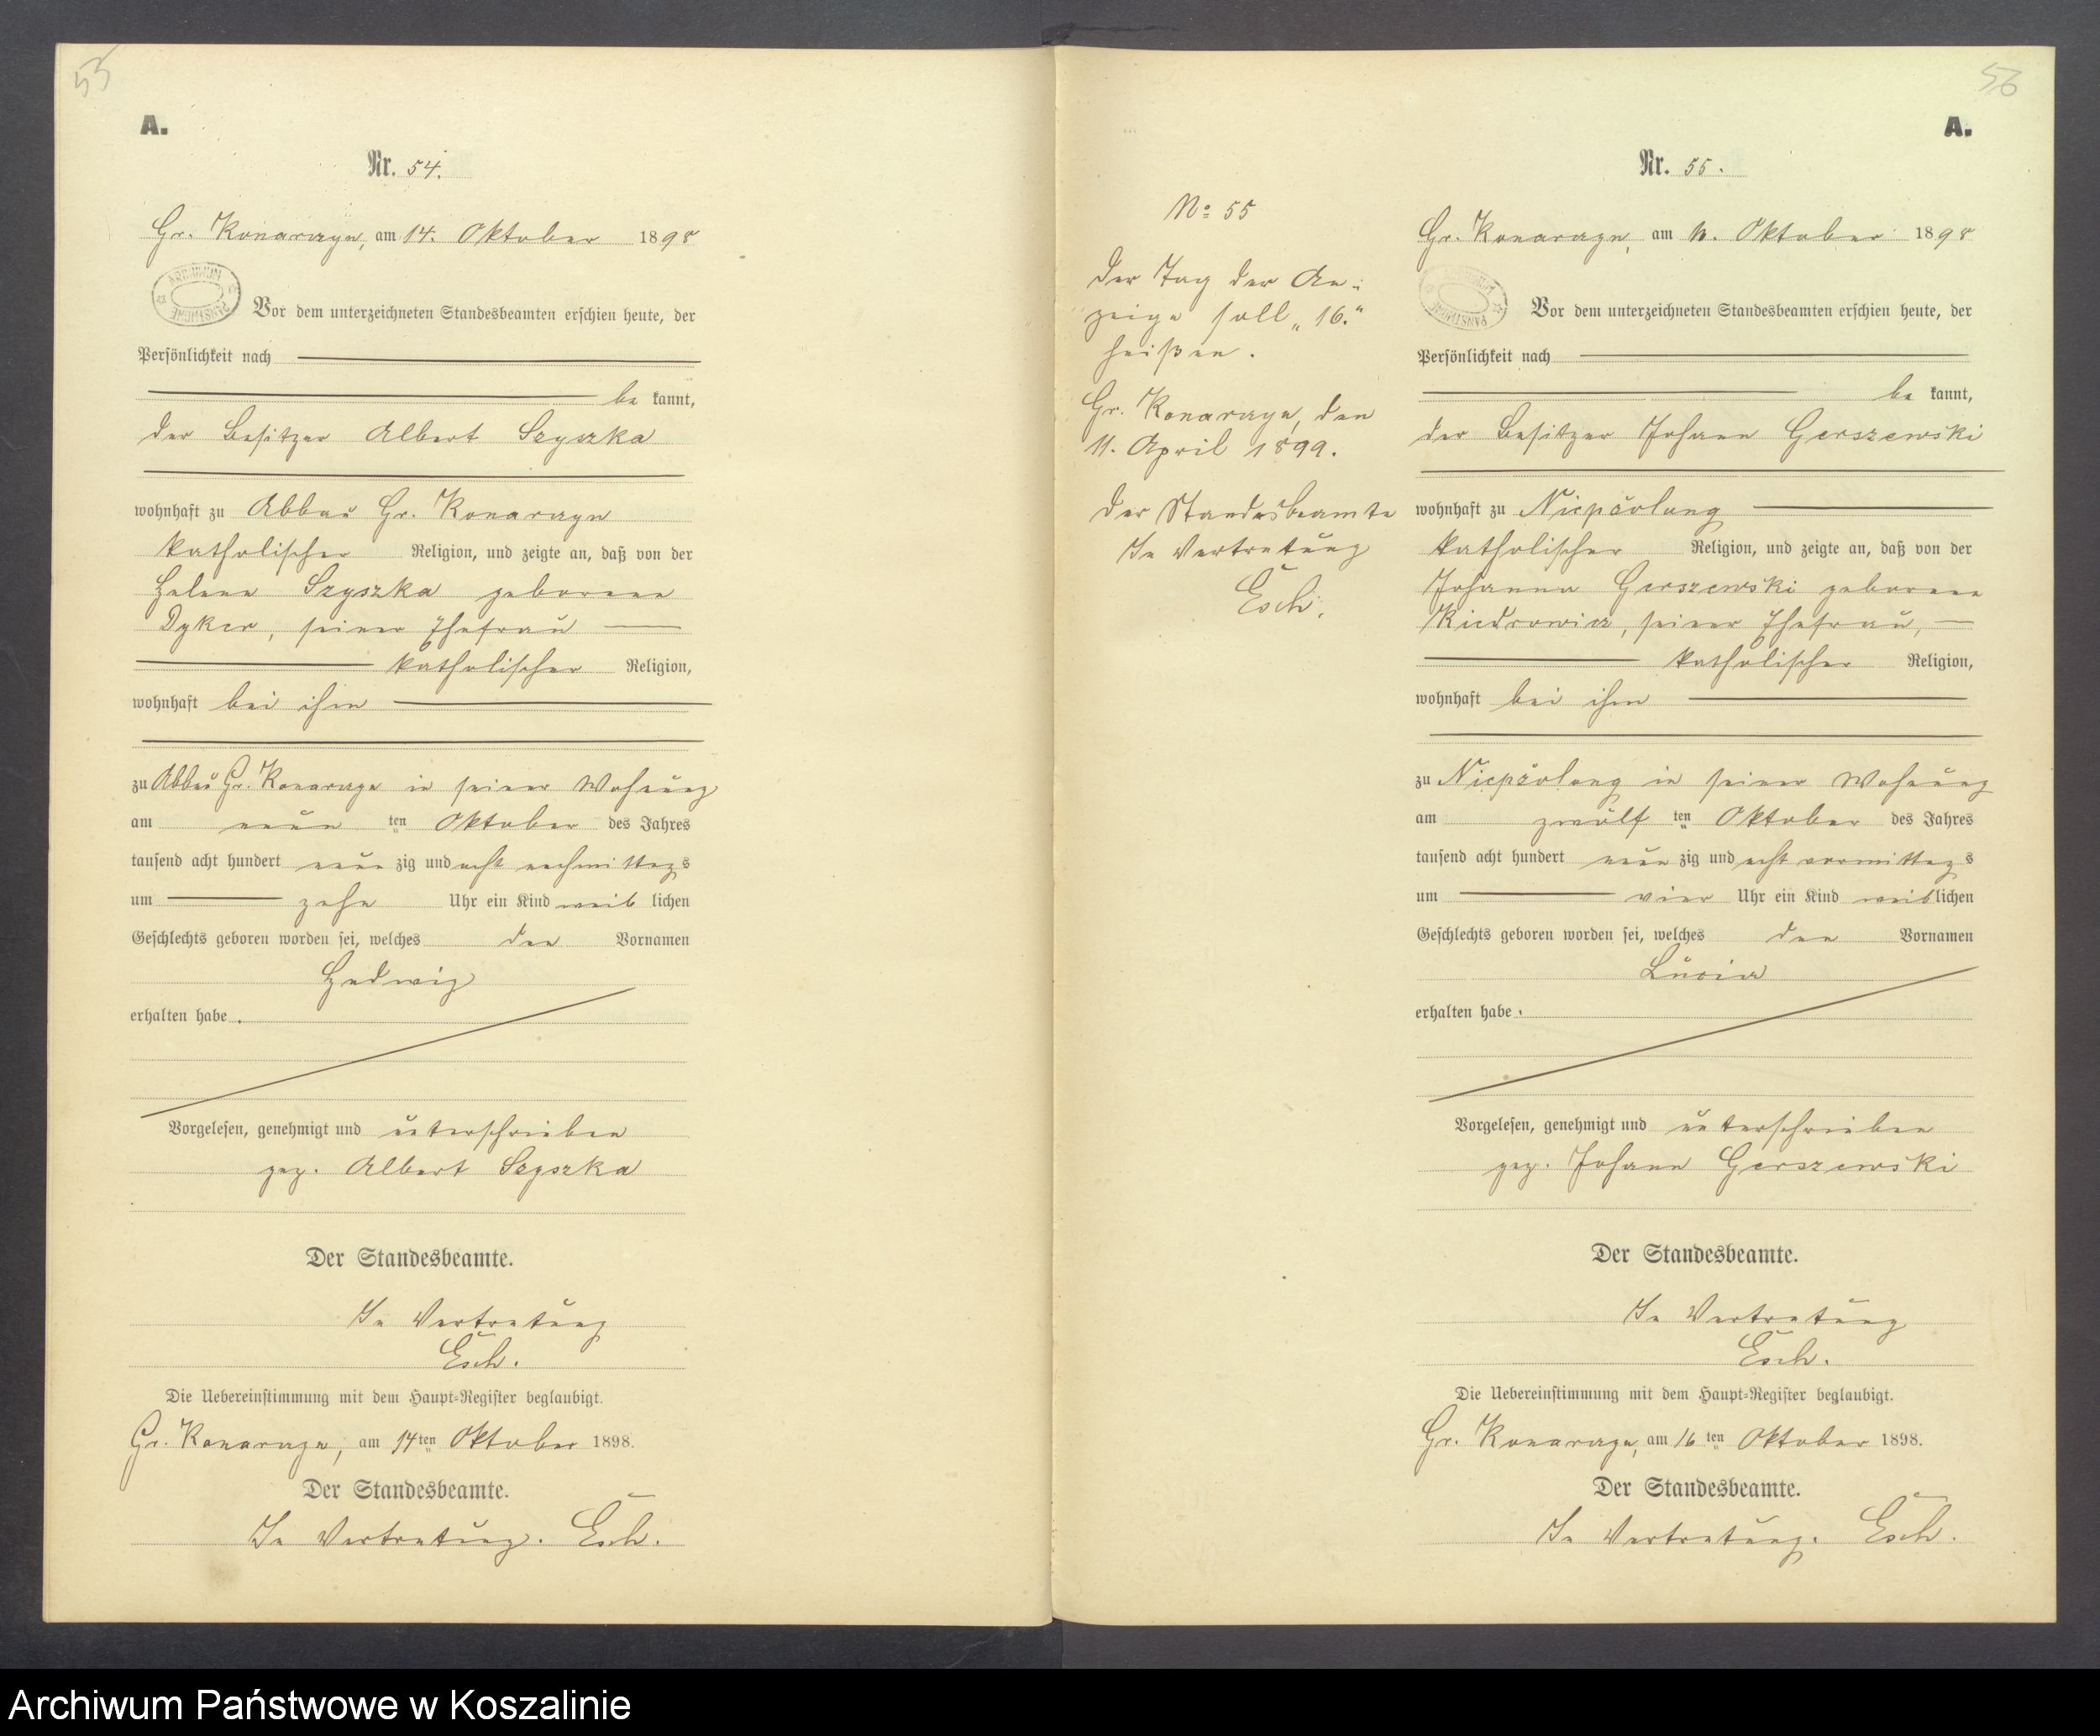 55
A.
Nr. 54.
Gr. Konarczyn, am 14. Oktober 1898
Vor dem unterzeichneten Standesbeamten erschien heute, der
Persönlichkeit nach
be kannt,
der Besitzer Albert Szyszka
wohnhaft zu Abbau Gr. Konarczyn
katholischer Religion, und zeigte an, daß von der
Helene Szyszka geborene
Dyker, seiner Ehefrau
katholischer Religion,
wohnhaft bei ihm
zu Abbau Gr. Konarczyn in seiner Wohnung
am neun ten Oktober des Jahres
tausend acht hundert neun zig und acht nachmittags
um zehn Uhr ein Kind weib lichen
Geschlechts geboren worden sei, welches den Vornamen
Hedwig
erhalten habe.
Vorgelesen, genehmigt und unterschrieben
gez. Albert Szyszka
Der Standesbeamte.
In Vertretung
Esch.
Die Uebereinstimmung mit dem Haupt-Register beglaubigt.
Gr. Konarczyn, am 14ten Oktober 1898.
Der Standesbeamte.
In Vertretung. Esch.
56
A.
No 55
Der Tag der An-
zeige soll „16."
heißen.
Gr. Konarczyn, den
11. April 1899.
Der Standesbeamte
In Vertretung
Esch.
Nr. 55.
Gr. Konarczyn, am Oktober 1898
Vor dem unterzeichneten Standesbeamten erschien heute, der
Persönlichkeit nach
be kannt,
der Besitzer Johann Gerszewski
wohnhaft zu Niepszolong
katholischer Religion, und zeigte an, daß von der
Johanna Gerszewski geborene
Kiedrowicz, seiner Ehefrau,
katholischer Religion,
wohnhaft bei ihm
zu Niepszolong in seiner Wohnung
am zwölf ten Oktober des Jahres
tausend acht hundert neun zig und acht vormittags
um vier Uhr ein Kind weiblichen
Geschlechts geboren worden sei, welches den Vornamen
Lucia
erhalten habe.
Vorgelesen, genehmigt und unterschrieben
gez. Johann Gerszewski
Der Standesbeamte.
In Vertretung
Esch.
Die Uebereinstimmung mit dem Haupt-Register beglaubigt.
Gr. Konarczyn, am 16ten Oktober 1898.
Der Standesbeamte.
In Vertretung. Esch.
Archiwum Państwowe w Koszalinie